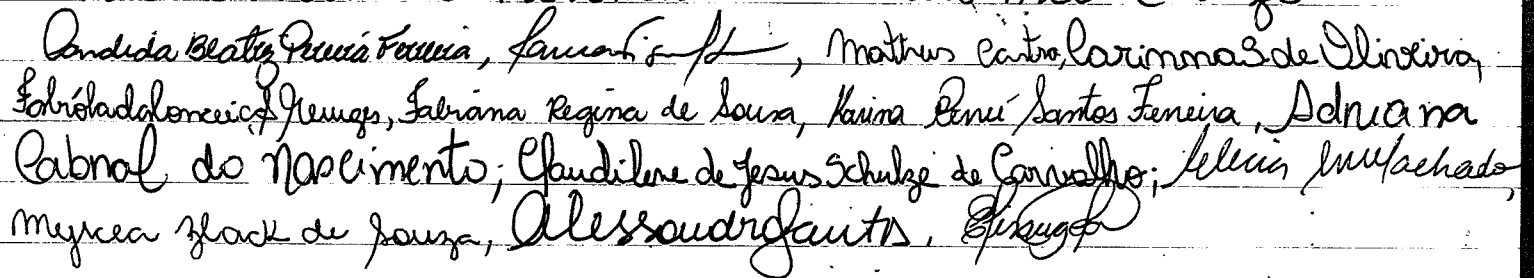 Candida Beatriz Pereira Ferreira, Matheus Castro, Carinma S de Oliveira,
Fabíola da Conceição, Fabiana Regina de Sousa, Karina Santos Ferreira, Adriana
Cabral do Nascimento; Claudilene de Jesus Schulze de Carvalho; Machado,
Myrcea de Souza, Alessandr Santos.